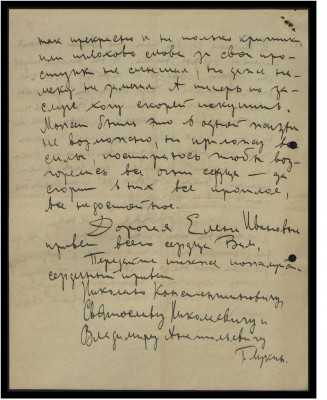 так прекрасно и ни только критики
или плохого слова за свои про-
ступки не слышал, но даже на-
мека не имел. А теперь по за-
слуге хочу скорей искупить.
Может быть это в одной жизни
не возможно, но приложу все
силы, постараюсь чтобы воз-
горелись все огни сердца — да
сгорит в них все прошлое,
все недостойное.
Дорогая Елена Ивановна
привет всего сердца Вам.
Передайте также пожалуйста
сердечный привет
Николаю Константиновичу,
Святославу Николаевичу и
Владимиру Анатольевичу
Г. Лукин.